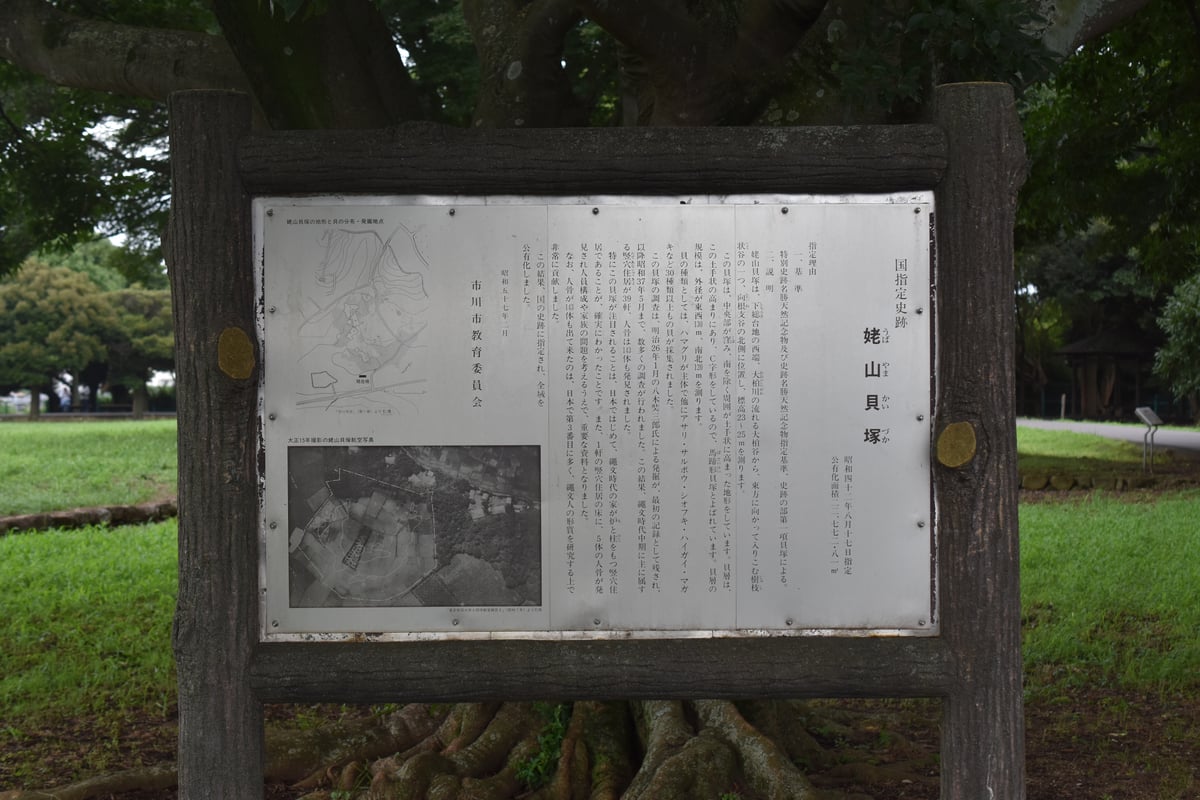 国指定史跡
姥山貝塚
うば やま かい づか
昭和四十二年八月十七日指定
公有化面積 二二、七七二・八一㎡
指定理由
一、基 準
特別史跡名勝天然記念物及び史跡名勝天然記念物指定基準、史跡の部第一項貝塚による。
二、説 明
姥山貝塚は、下総台地の西端、大柏川の流れる大柏谷から、東方に向かって入りこむ樹枝
状谷の一つ、向根支谷の北側に位置し、標高23～25mを測ります。
この貝塚は、中央部が窪み、南を除く周囲が土手状に高まった地形をしています。貝層は、
この土手状の高まりにあり、C字形をしているので、馬蹄形貝塚とよばれています。貝層の
規模は、外径が東西130m、南北120mを測ります。
貝の種類としては、ハマグリが主体で他にアサリ・サルボウ・シオフキ・ハイガイ・マガ
キなど30種類以上もの貝が採集されました。
この貝塚の調査は、明治26年1月の八木奘三郎氏による発掘が、最初の記録として残され、
以降昭和37年5月まで、数多くの調査が行われました。この結果、縄文時代中期に主に属す
る竪穴住居が39軒、人骨は143体も発見されました。
特にこの貝塚が注目されることは、日本ではじめて、縄文時代の家が炉と柱をもつ竪穴住
居であることが、確実にわかったことです。また、1軒の竪穴住居の床に、5体の人骨が発
見され人員構成や家族の問題を考えるうえで、重要な資料となりました。
なお、人骨が143体も出て来たのは、日本で第3番目に多く、縄文人の形質を研究する上で
非常に貢献しました。
この結果、国の史跡に指定され、全域を
公有化しました。
昭和五十七年 月
市川市教育委員会
姥山貝塚の地形と貝の分布・発掘地点
大正15年撮影の姥山貝塚航空写真